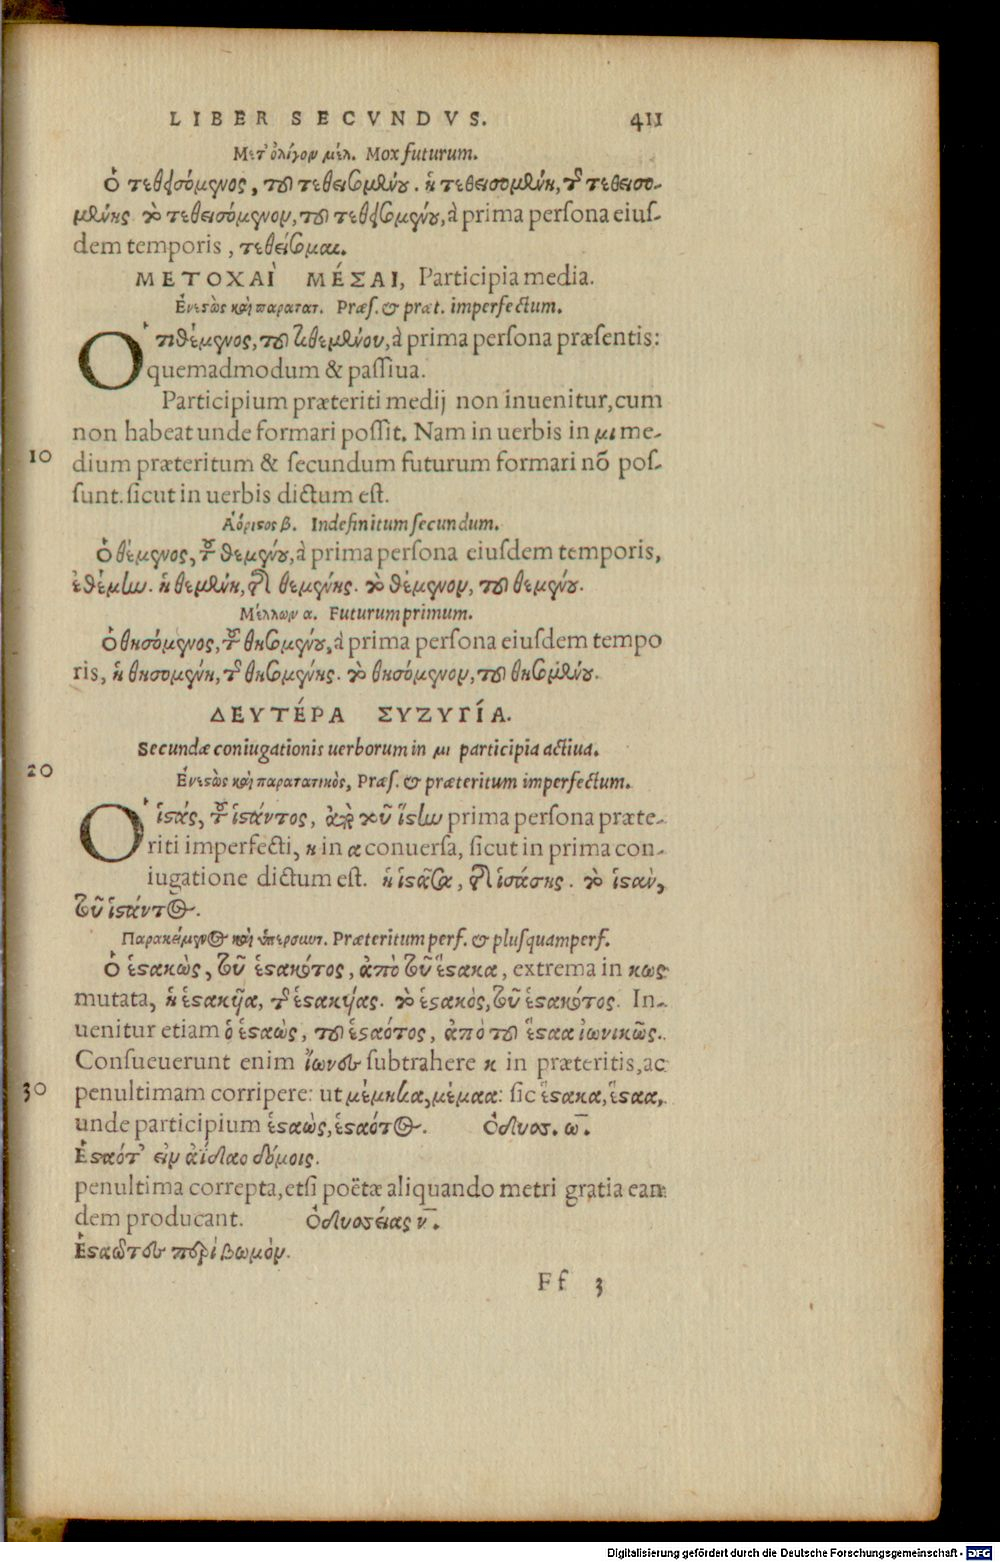 LIBER SECVNDVS. 411
Μετ' ὀλίγον μέλ. Mox futurum.
Ὁ τεθεισόμενος, τοῦ τεθεισομένου. ἡ τεθεισομένη, τῆς τεθεισο-
μένης τὸ τεθεισόμενον, τοῦ τεθεισομένου, à prima persona eius-
dem temporis, τεθείσομαι.
ΜΕΤΟΧΑῚ ΜΈΣΑΙ, Participia media.
Ἐνεστὼς καὶ παρατατ. Præs. & præt. imperfectum.
Ὁ τιθέμενος, τοῦ τιθεμένου, à prima persona præsentis:
quemadmodum & passiua.
Participium præteriti medij non inuenitur, cum
non habeat unde formari possit. Nam in uerbis in μι me-
10 dium præteritum & secundum futurum formari nō pos-
sunt. sicut in uerbis dictum est.
Ἀόριστος β. Indefinitum secundum.
Ὁ θέμενος, τοῦ θεμένου, à prima persona eiusdem temporis,
ἐθέμην. ἡ θεμένη, τῆς θεμένης. τὸ θέμενον, τοῦ θεμένου.
Μέλλων α. Futurum primum.
Ὁ θησόμενος, τοῦ θησομένου, à prima persona eiusdem tempo
ris, ἡ θησομένη, τῆς θησομένης. τὸ θησόμενον, τοῦ θησομένου.
ΔΕΥΤΈΡΑ ΣΥΖΥΓΊΑ.
Secundæ coniugationis uerborum in μι participia actiua.
20 Ἐνεστὼς καὶ παρατατικὸς, Præs. & præteritum imperfectum.
Ὁ ἱστάς, τοῦ ἱστάντος, ἀπὸ τοῦ ἵστην prima persona præte-
riti imperfecti, η in α conuersa, sicut in prima con-
iugatione dictum est. ἡ ἱστᾶσα, τῆς ἱστάσης. τὸ ἱστὰν,
τοῦ ἱστάντος.
Παρακείμενος καὶ ὑπερσυντ. Præteritum perf. & plusquamperf.
Ὁ ἑστακὼς, τοῦ ἑστακότος, ἀπὸ τοῦ ἕστακα, extrema in κως
mutata, ἡ ἑστακυῖα, τῆς ἑστακυίας. τὸ ἑστακὸς, τοῦ ἑστακότος. In-
uenitur etiam ὁ ἑσταὼς, τοῦ ἑσταότος, ἀπὸ τοῦ ἕσταα ἰωνικῶς.
Consueuerunt enim ἴωνες subtrahere κ in præteritis, ac
30 penultimam corripere: ut μέμηκα, μέμαα: sic ἕστακα, ἕσταα,
unde participium ἑσταὼς, ἑσταότος. Ὀδυσσ. ω.
Ἑσταότ' εἰν ἀΐδαο δόμοις.
penultima correpta, etsi poëtæ aliquando metri gratia ean
dem producant. Ὀδυσσείας ν.
Ἑσταῶτες περὶ βωμὸν.
Ff 3
Digitalisierung gefördert durch die Deutsche Forschungsgemeinschaft - DFG